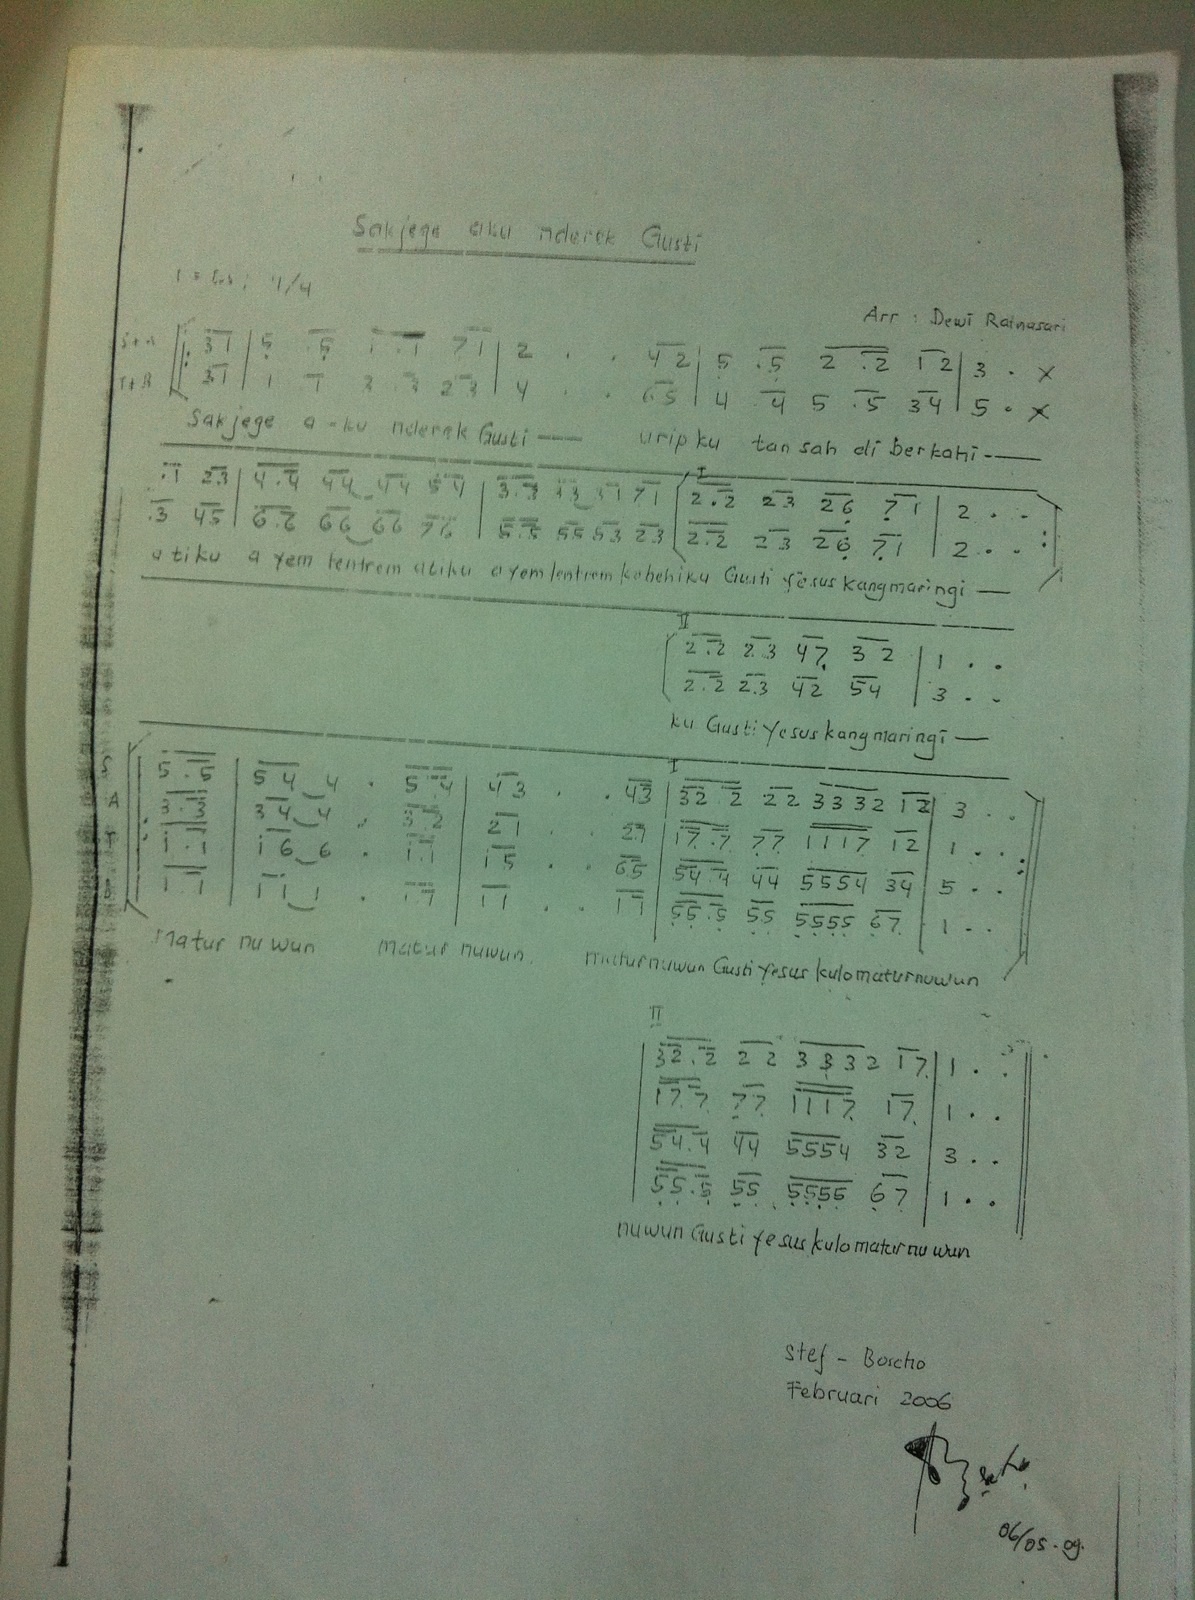 Sakjege aku nderek Gusti
4/4
Arr : Dewi Ratnasari
S+A 31 | 5 .5 1 .1 71 | 2 . . 42 | 5 .5 2 .2 12 | 3 . X
T+B 31 | 1 1 3 .3 23 | 4 . . 65 | 4 .4 5 .5 34 | 5 . X
Sakjege a-ku nderek Gusti — urip ku tan sah di berkahi —
I
.1 23 | 4.4 44 44 54 | 3.3 33 31 71 | 2.2 23 26 71 | 2 . .
.3 45 | 6.6 66 66 76 | 5.5 55 53 23 | 2.2 23 26 71 | 2 . . :
atiku ayem tentrem atiku ayem tentrem kabehiku Gusti Yesus kang maringi —
II
2.2 23 47 32 | 1 . .
2.2 23 42 54 | 3 . .
ku Gusti Yesus kang maringi —
I
S 5.5 | 54 4 . 5.4 | 43 . . 43 | 32.2 22 3332 12 | 3 . .
A 3.3 | 34 4 . 3.2 | 21 . . 21 | 17.7 77 1117 12 | 1 . . :
T : 1.1 | 16 6 . 1.1 | 15 . . 65 | 54.4 44 5554 34 | 5 . .
B 1.1 | 11 1 . 1.7 | 11 . . 11 | 55.5 55 5555 67 | 1 . .
Matur nuwun matur nuwun maturnuwun Gusti Yesus kulo maturnuwun
II
32.2 22 3332 17 | 1 . .
17.7 77 1117 17 | 1 . .
54.4 44 5554 32 | 3 . .
55.5 55 5555 67 | 1 . .
nuwun Gusti Yesus kulo matur nuwun
Stef - Boscho
Februari 2006
06/05-09.